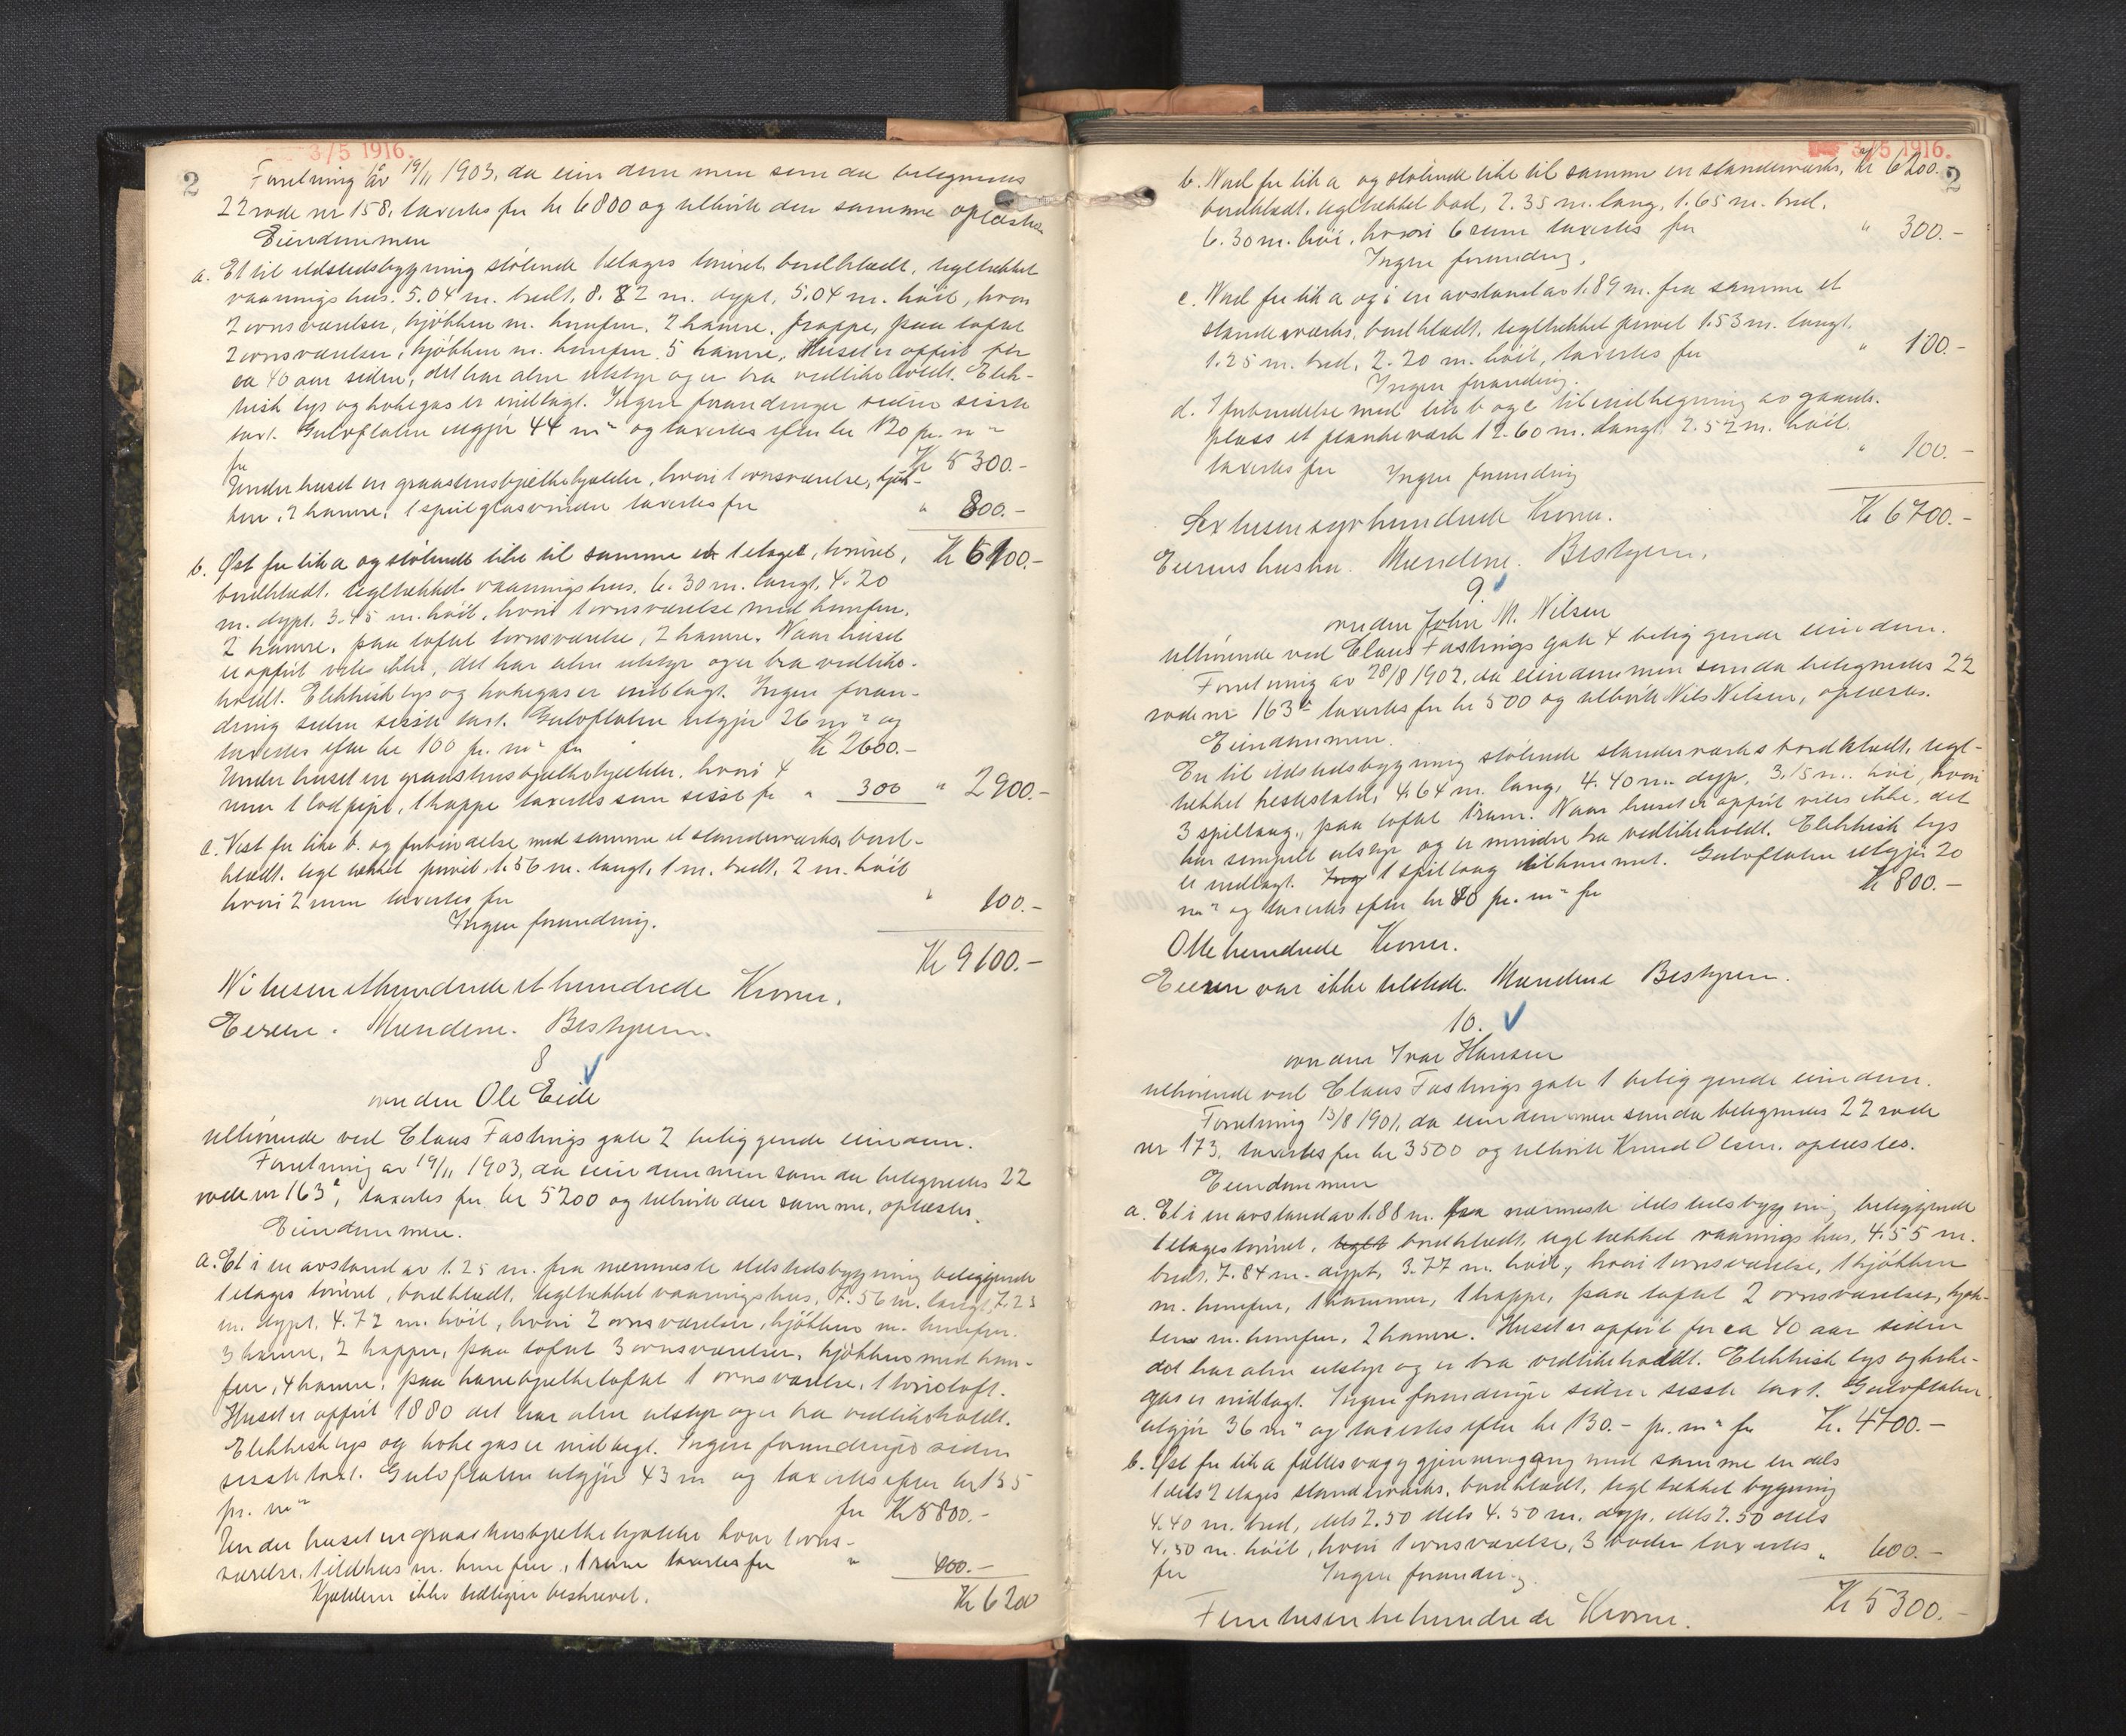 3/5 1916.
2
Forretning av 19/11 1903, da eiendommen som da betegnedes
22 rode nr 158, taxertes for kr 6800 og tilhørte den samme oplæstes
Eiendommen
a. Et til ildstedsbygning stötende 1 etages tömret, bordklædt, tegltækket
vaaningshus, 5.04 m. bredt, 8.82 m. dypt, 5.04 m. höit, hvori
2 ovnsværelser, kjökken m. komfur, 2 kamre, trappe, paa loftet
2 ovnsværelser, kjökken m. komfur, 5 kamre, Huset er opfört for
ca 40 aar siden, det har alm utstyr og er bra vedlikeholdt. Elek-
trisk lys og kokegas er indlagt. Ingen forandringer siden sisste
taxt. Gulvflaten utgjör 44 m² og taxertes efter kr 120 pr. m²
for Kr 5300.-
Under huset en graastensbjelkekjelder, hvori 1 ovnsværelse, kjök-
ken, 2 kamre, 1 speilglasvindu taxertes for " 800.-
Kr 6100.-
b. Öst for litr a og stötende like til samme et 1 etages, tömret,
bordklædt, tegltækket vaaningshus, 6.30 m. langt, 4.20
m. dypt, 3.45 m. höit, hvori 1 ovnsværelse med komfur,
2 kamre, paa loftet 1 ovnsværelse, 2 kamre. Naar huset
er opfört vites ikke, det har alm utstyr og er bra vedlike-
holdt. Elektrisk lys og kokegas er indlagt. Ingen foran-
dring siden sisste taxt. Gulvflaten utgjör 26 m² og
taxertes efter kr 100 pr. m² for Kr 2600.-
Under huset en graastensbjelkekjelder, hvori 4
rum 1 lodpipe, 1 trappe taxertes som sisst for " 300 " 2900.-
c. Vest for litr b. og forbindelse med samme et standerværks, bord-
klædt, tegltækket privet, 1.56 m. langt, 1 m. bredt, 2 m. höit
hvori 2 rum taxertes for " 100.-
Ingen forandring.
Kr 9100.-
Ni tusen ethundrede et hundrede Kroner.
Eieren. Mændene. Bestyren.
8
over den Ole Eide
tilhörende ved Claus Fastings gate 2 beliggende eiendom.
Forretning av 19/11 1903, da eiendommen som da betegnedes 22
rode nr 163ª, taxertes for kr 5200 og tilhörte den samme, oplæstes.
Eiendommen.
a. Et i en avstand av 1.25 m. fra nærmeste ildstedsbygning beliggende
1 etages tömret, bordklædt, tegltækket vaaningshus, 7.56 m. langt, 7.23
m. dypt, 4.72 m. höit, hvori 2 ovnsværelser, kjökken m. komfur,
3 kamre, 2 trapper, paa loftet 3 ovnsværelser, kjökken med kom-
fur, 4 kamre, paa hanebjelkeloftet 1 ovnsværelse, 1 törreloft.
Huset er opfört 1880 det har alm utstyr og er bra vedlikeholdt.
Elektrisk lys og kokegas er indlagt. Ingen forandringer siden
sisste taxt. Gulvflaten utgjör 43 m² og taxertes efter kr 135
pr. m² for Kr 5800.-
Under huset en graastensbjelkekjelder hvori 1 ovns-
værelse, 1 ildhus m. komfur, 1 rum taxertes for " 400.-
Kjelderen ikke tidligere beskrevet. Kr 6200
3/5 1916.
2
Kr 6200.-
b. Nord for litr a og stötende like til samme en standerværks,
bordklædt, tegltækket bod, 2.35 m. lang, 1.65 m. bred,
6.30 m. höi, hvori 6 rum taxertes for " 300.-
Ingen forandring.
c. Nord for litr a og i en avstand av 1.89 m. fra samme et
standerværks, bordklædt, tegltækket privet 1.53 m. langt,
1.25 m. bred, 2.20 m. höit, taxertes for " 100.-
Ingen forandring.
d. I forbindelse med litr b og c til indhegning av gaards-
plass et plankeverk 12.60 m. langt 2.52 m. höit,
taxertes for " 100.-
Ingen forandring
Kr 6700.-
Sex tusen syv hundrede Kroner.
Eierens hustru. Mændene. Bestyren.
9
over den John M. Nilsen
tilhörende ved Claus Fastings gate 4 beliggende eiendom.
Forretning av 28/8 1902, da eiendommen som da betegnedes 22
rode nr 163ᵇ taxertes for kr 500 og tilhörte Nils Nilsen, oplæstes.
Eiendommen.
En til ildstedsbygning stötende standerværks bordklædt, tegl-
tækket hestestald, 4.64 m. lang, 4.40 m. dyp, 3.15 m. höi, hvori
3 spiltaug, paa loftet 1 rum. Naar huset er opfört vites ikke, det
har simpelt utstyr og er mindre bra vedlikeholdt. Elektrisk lys
er indlagt. Ing 1 spiltaug tilkommet. Gulvflaten utgjör 20
m² og taxertes efter kr 40 pr. m² for Kr 800.-
Otte hundrede Kroner.
Eieren var ikke tilstede. Mændene Bestyren.
10.
over den Ivar Hansen
tilhörende ved Claus Fastings gate 1 beliggende eiendom.
Forretning 13/8 1901, da eiendommen som da betegnedes 22 rode
nr 173, taxertes for kr 3500 og tilhörte Knud Olsen, oplæstes.
Eiendommen
a. Et i en avstand av 1.88 m. fra nærmeste ildstedsbygning beliggende
1 etages tömret, teglt bordklædt, tegltækket vaaningshus, 4.55 m.
bredt, 7.84 m. dypt, 3.77 m. höit, hvori 1 ovnsværelse, 1 kjökken
m. komfur, 1 kammer, 1 trappe, paa loftet 2 ovnsværelser, kjök-
ken m. komfur, 2 kamre. Huset er opfört for ca 40 aar siden
det har alm utstyr og er bra vedlikeholdt. Elektrisk lys og koke-
gas er indlagt. Ingen forandringer siden sisste taxt. Gulvflaten
utgjör 36 m² og taxertes efter kr 130.- pr. m² for Kr. 4700.-
b. Öst for litr a fælles væg gjennemgang med samme en dels
1 dels 2 etages standerværks, bordklædt, tegltækket bygning
4.40 m. bred, dels 2.50 dels 4.50 m. dyp, dels 2.50 dels
4.50 m. höit, hvori 1 ovnsværelse, 3 boder taxertes " 600.-
for Ingen forandring.
Kr 5300.-
Fem tusen tre hundrede Kroner.